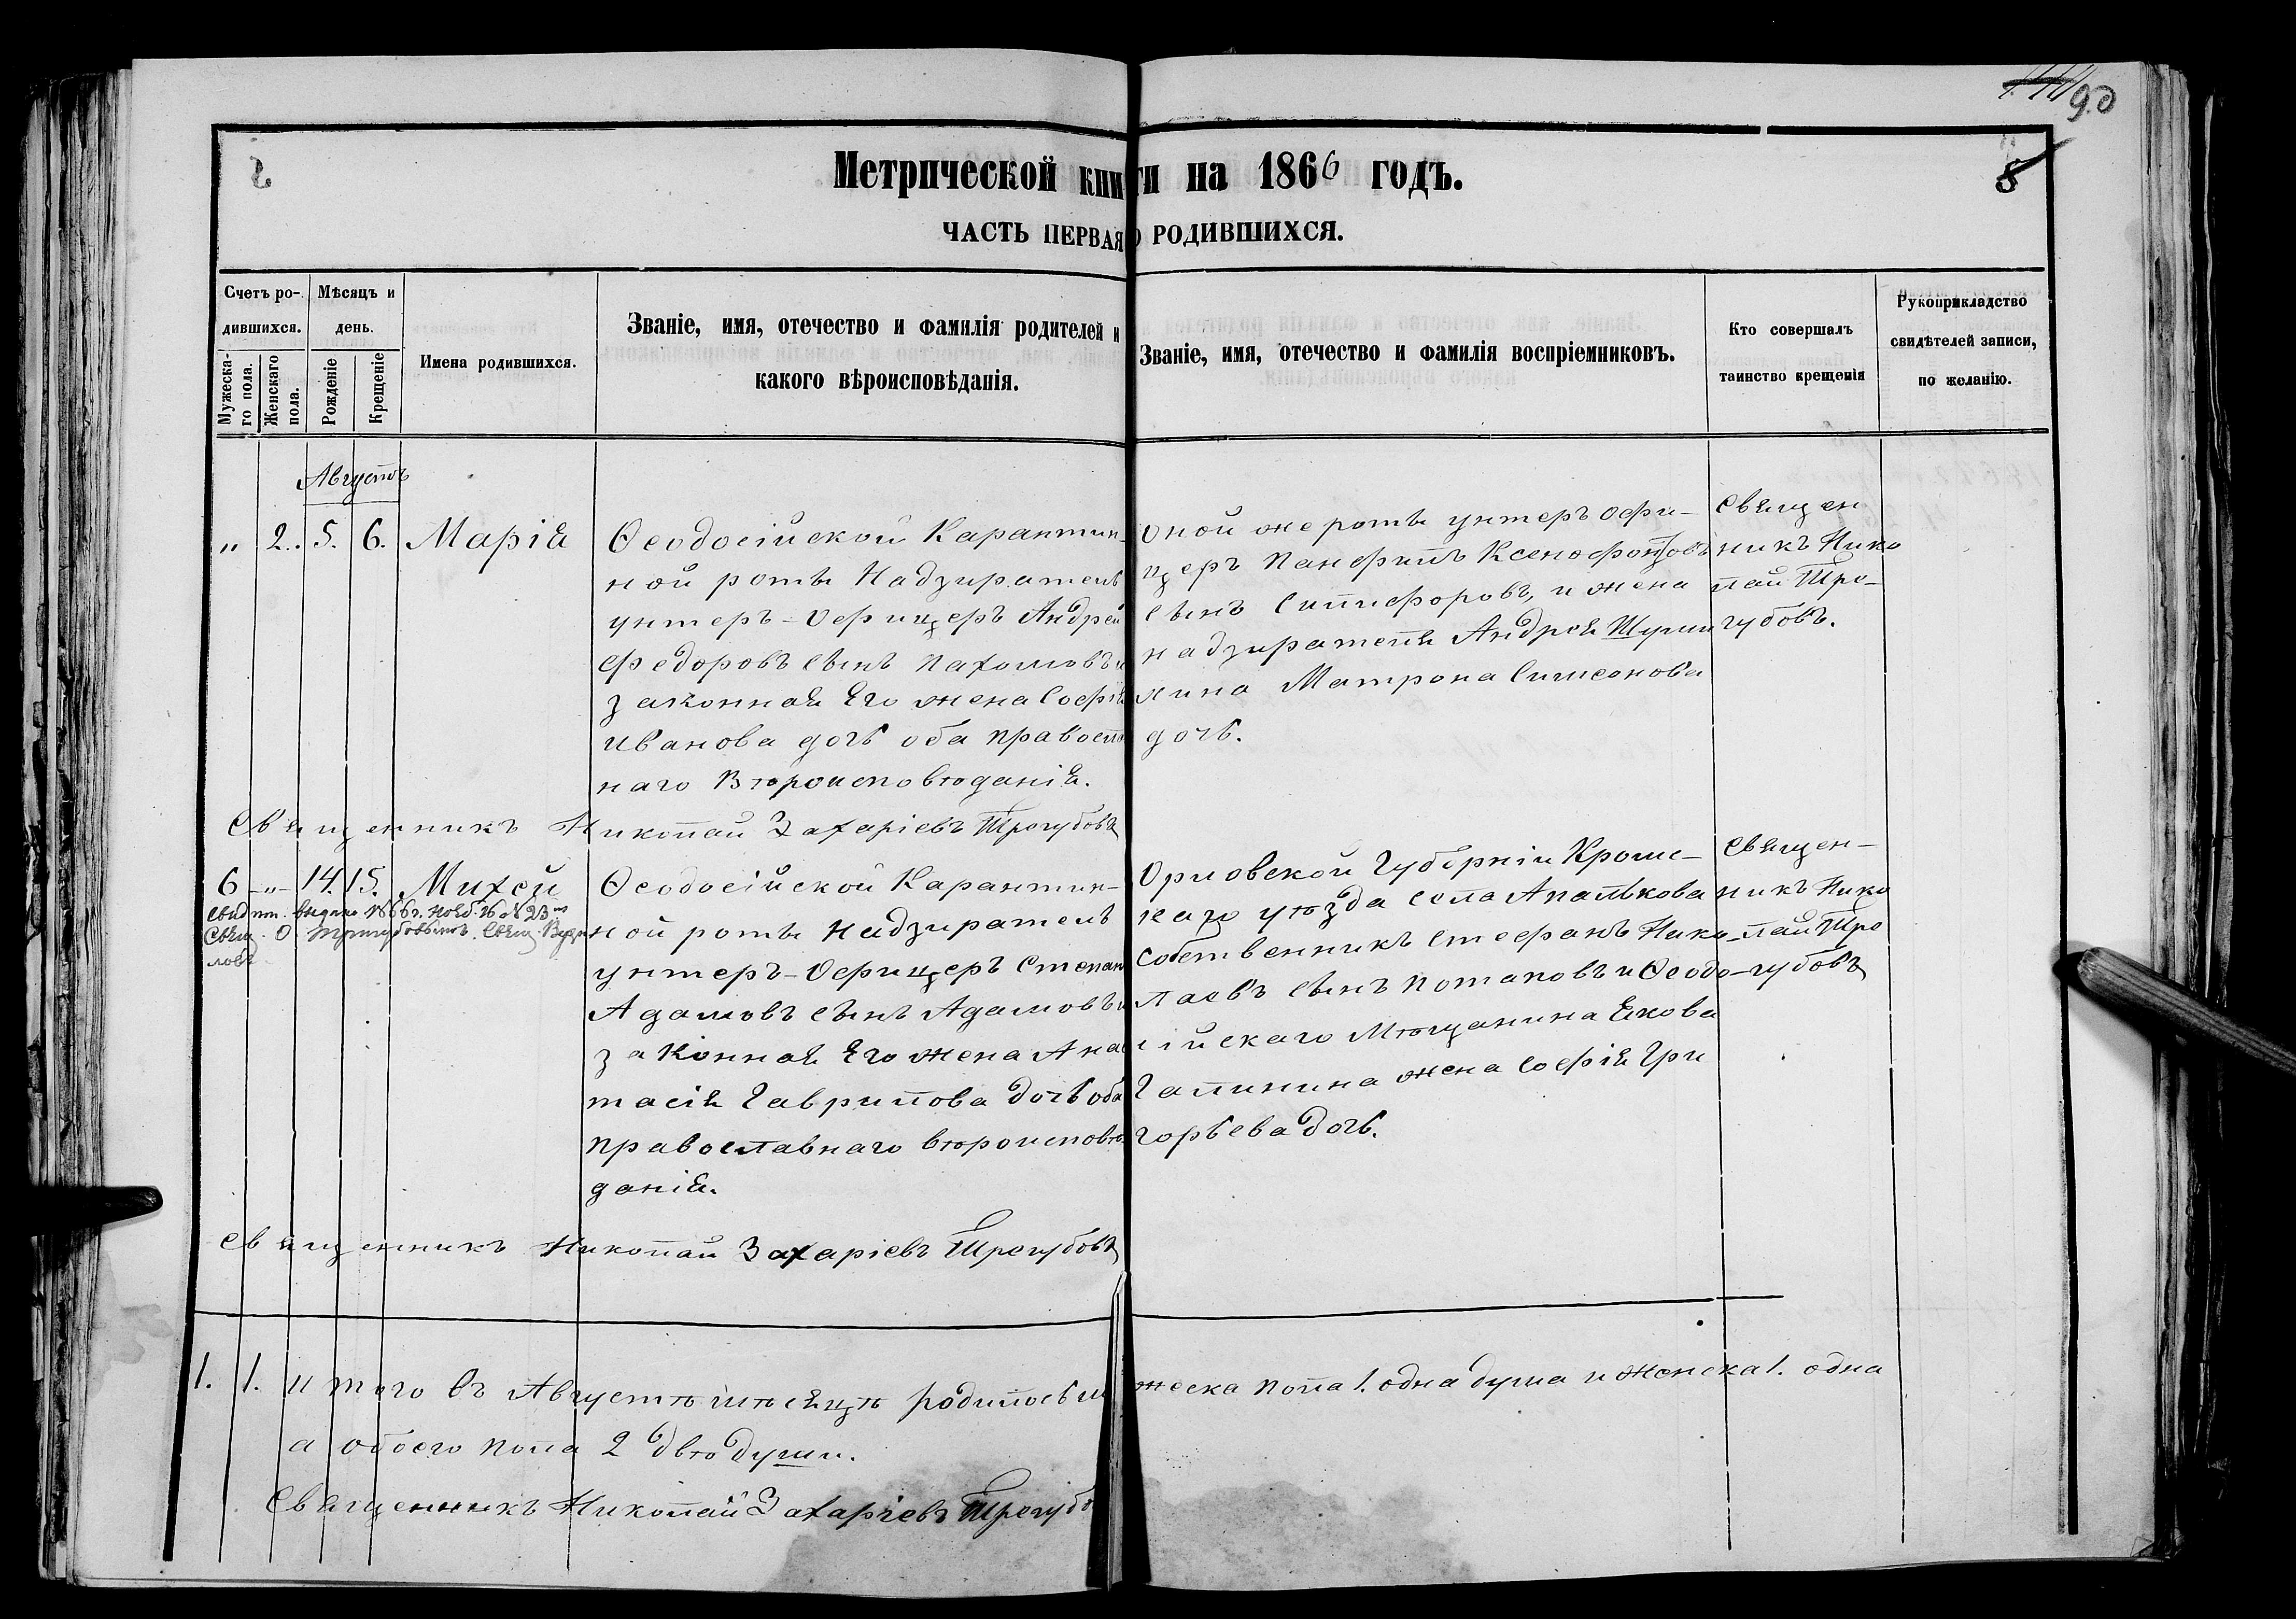 90
Метрической книги на 1866 годъ.
8
ЧАСТЬ ПЕРВАЯ О РОДИВШИХСЯ.
Счетъ ро-
дившихся.
Мужеска-
го пола.
Женскаго
пола.
Мѣсяцъ и
день.
Рожденіе
Крещеніе
Имена родившихся.
Званіе, имя, отечество и фамилія родителей и
какого вѣроисповѣданія.
Званіе, имя, отечество и фамилія воспріемниковъ.
Кто совершалъ
таинство крещенія
Рукоприкладство
свидѣтелей записи,
по желанію.
Августъ
„ 2. 5. 6. Марія
Ѳеодосійской Карантин-
ной роты Надзиратель
унтеръ-Офицеръ Андрей
Федоровъ сынъ Пахомовъ и
законная Его жена Софія
Иванова дочь оба правосла
наго Вѣроисповѣданія.
оной же роты унтеръ офи-
церъ Панфилъ Ксенофонтовъ
сынъ Сиписоровъ, и жена
надзирателя Андрея Шуми
лина Матрона Симеонова
дочь.
Священ
никъ Нико
лай Тро-
губовъ.
Священникъ Николай Захаріевъ Трогубовъ
6 -„- 14. 15. Михей
Свид. выдано 1866 г. Нояб. 16 № 23
Свящ. О. Трогубовымъ. Свящ.
Ѳеодосійской Карантин-
ной роты Надзиратель
унтеръ-Офицеръ Степан
Адамовъ сынъ Адамовъ и
законная Его жена Анас
тасія Гаврилова дочь оба
православнаго вѣроисповѣ-
данія.
Орловской Губерніи Кромс-
каго уѣзда села Апалькова
Собственникъ Стефанъ Нико-
лаевъ сынъ Потаповъ и Ѳеодо-
сійскаго Мѣщанина Якова
Галинина жена Софія Гри
горьева дочь.
Священ-
никъ Нико
лай Тро
губовъ
Священникъ Николай Захаріевъ Трогубовъ
1. 1. Итого въ Августѣ мѣсяцѣ родилось мужеска пола 1. одна душа и женска 1. одна
а обоего пола 2 двѣ души.
Священникъ Николай Захаріевъ Трогубо